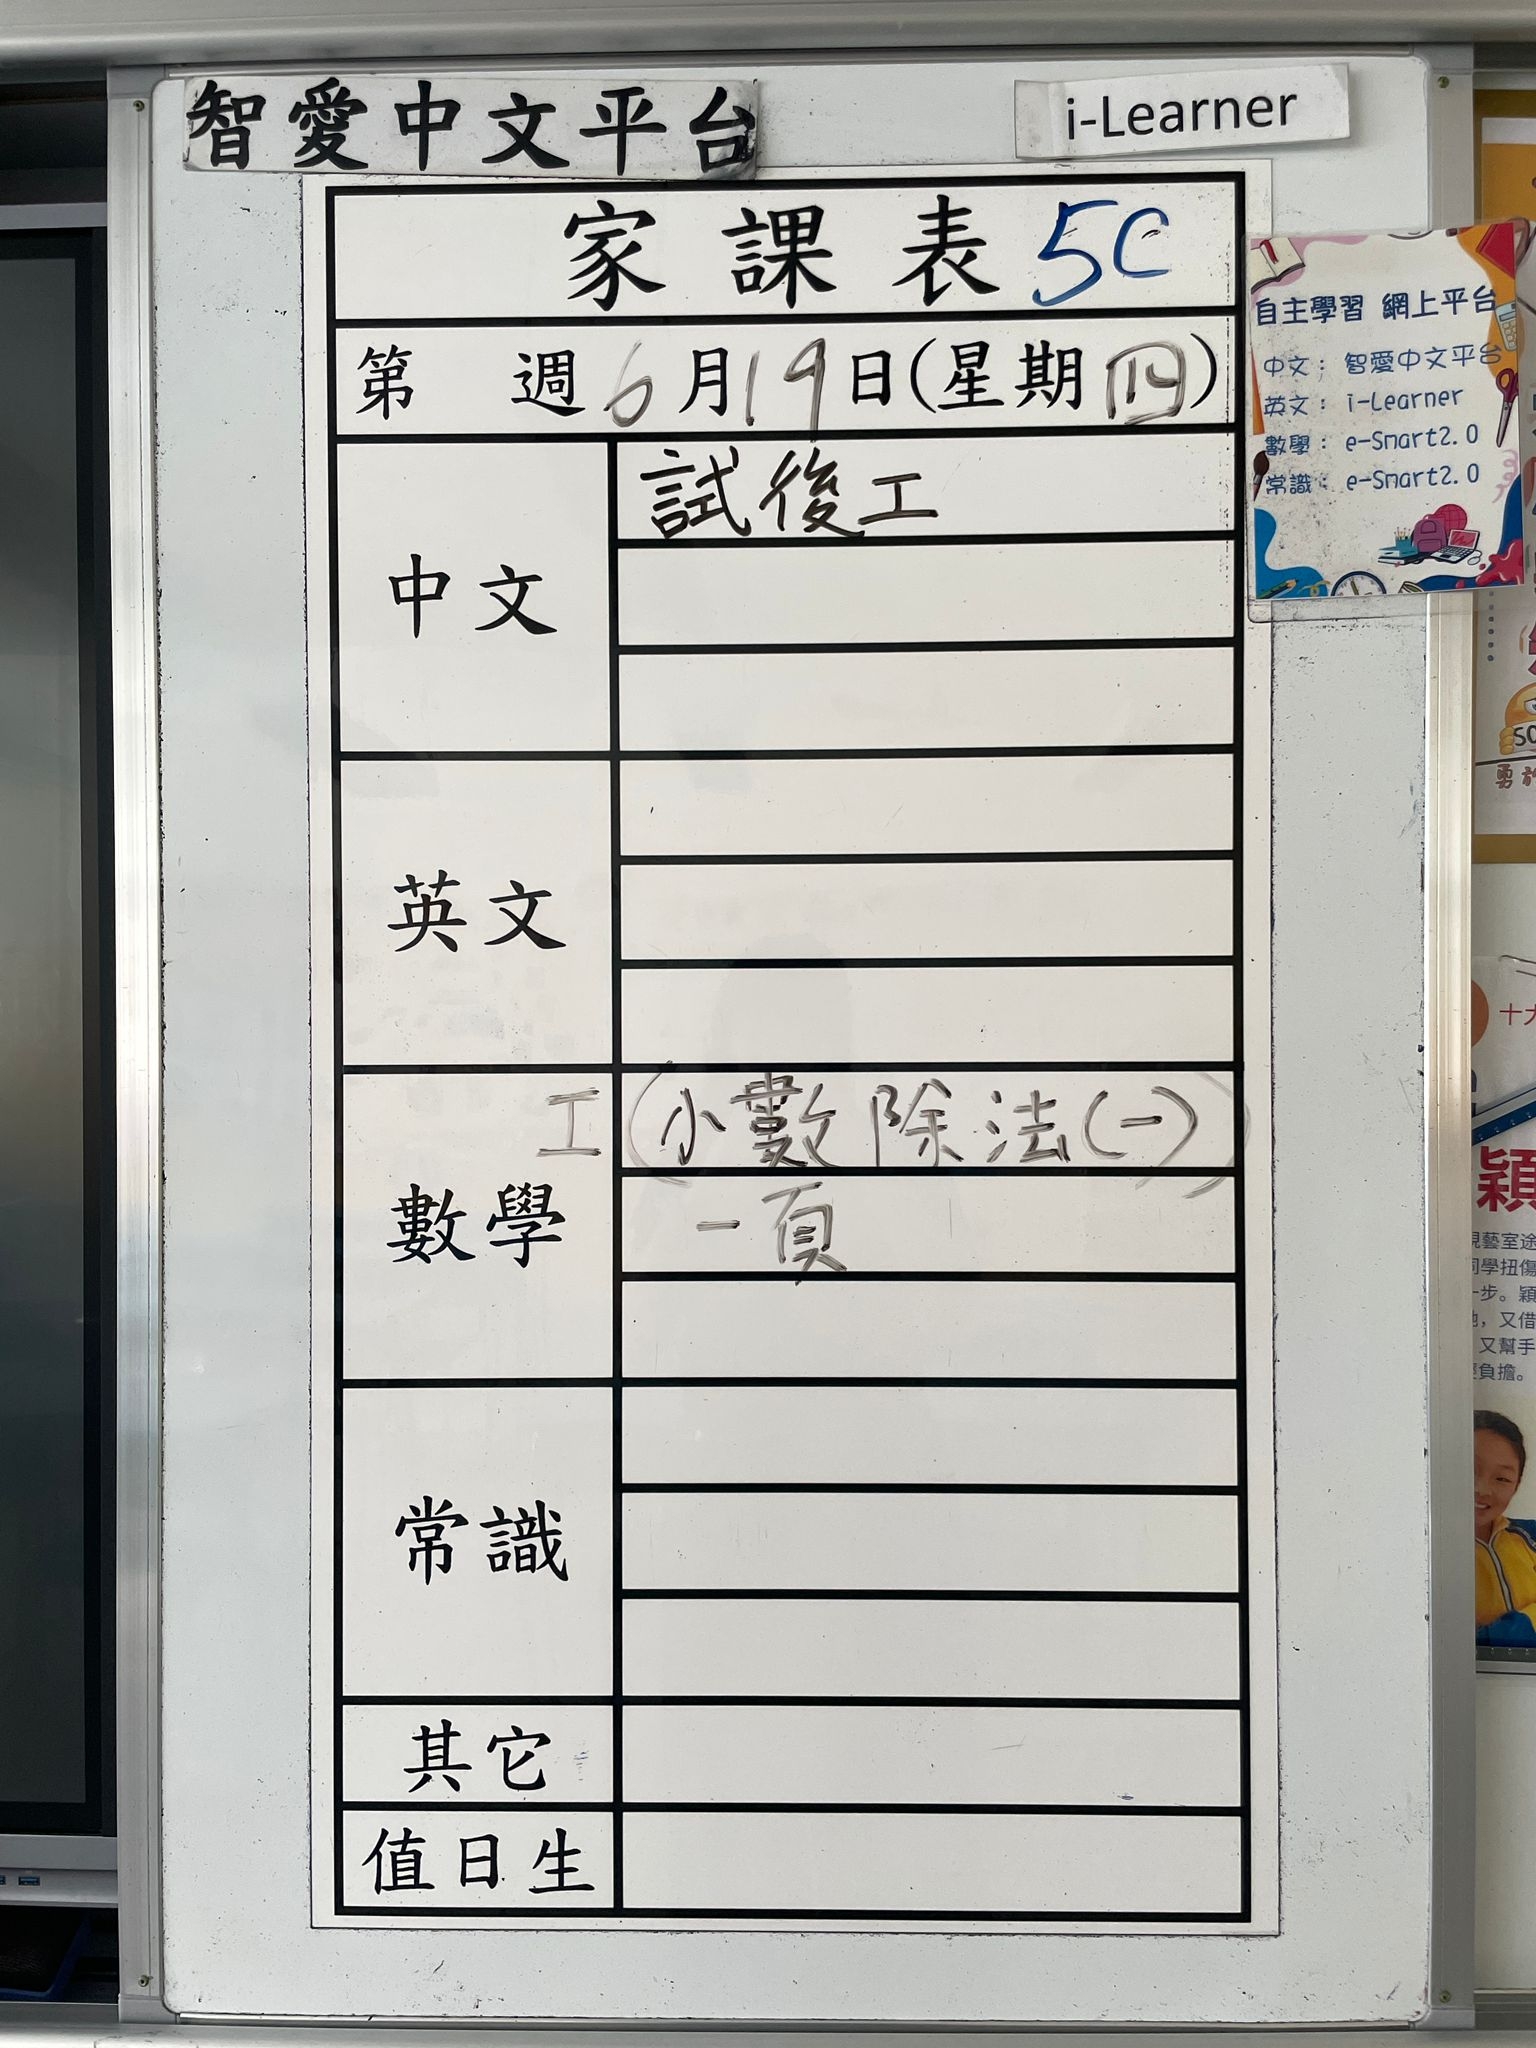 智愛中文平台
i-Learner
家課表 5C
第 週 6月19日(星期四)
中文
試後工
英文
數學
工(小數除法(一))
一頁
常識
其它
值日生
自主學習 網上平台
中文： 智愛中文平台
英文： i-Learner
數學： e-Smart2.0
常識： e-Smart2.0
勇於
十大
穎
視藝室途
同學扭傷
一步。穎
他，又借
又幫手
負擔。